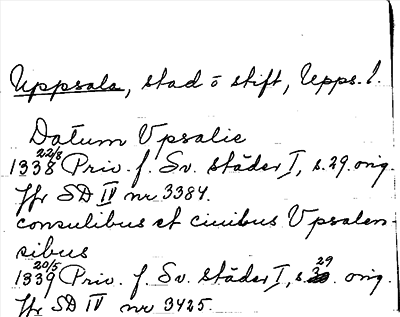 Uppsala, stad o stift, Upps. l.
Datum Vpsalie
1338 22/8 Priv. f. Sv. städer I, s. 29. orig.
Jfr SD IV nr 3384.
consulibus et ciuibus Vpsalen-
sibus
1339 20/5 Priv. f. Sv. städer I, s. 29. orig.
Jfr SD IV nr 3425.